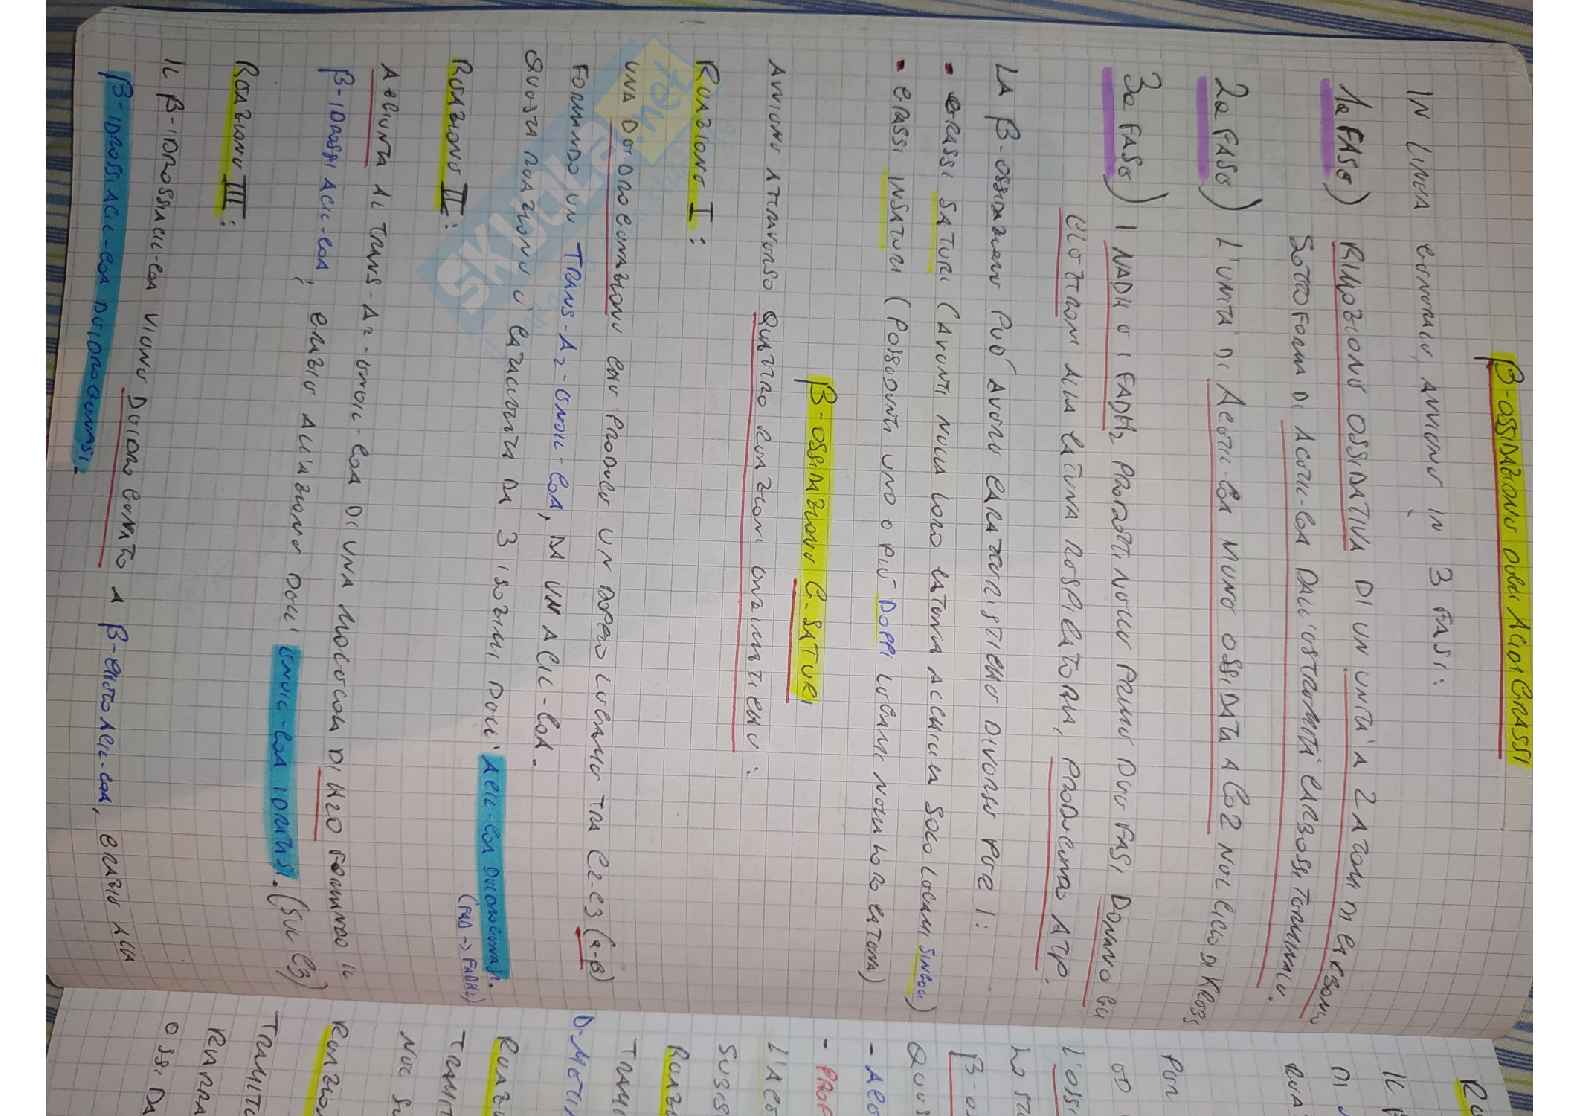 β-OSSIDAZIONE DEGLI ACIDI GRASSI
IN LINEA GENERALE, AVVIENE IN 3 FASI:
1a FASE) RIMOZIONE OSSIDATIVA DI UN UNITA' A 2 ATOMI DI CARBONIO
SOTTO FORMA DI ACETIL-COA DALL'ESTREMITÀ CARBOSSITERMINALE.
2a FASE) L'UNITA' DI ACETIL-COA VIENE OSSIDATA A CO2 NEL CICLO DI KREBS
3a FASE) I NADH E I FADH2 PRODOTTI NELLE PRIME DUE FASI DONANO GLI
ELETTRONI ALLA CATENA RESPIRATORIA, PRODUCENDO ATP.
LA β-OSSIDAZIONE PUÒ AVERE CARATTERISTICHE DIVERSE PER I:
• GRASSI SATURI (AVENTI NELLA LORO CATENA ALCHILICA SOLO LEGAMI SINGOLI)
• GRASSI INSATURI (POSSIEDENTI UNO O PIÙ DOPPI LEGAMI NELLA LORO CATENA)
β-OSSIDAZIONE G. SATURI
AVVIENE ATTRAVERSO QUATTRO REAZIONI ENZIMATICHE:
REAZIONE I:
UNA DEIDROGENAZIONE CHE PRODUCE UN DOPPIO LEGAME TRA C2 C3 (α-β)
FORMANDO UN TRANS-Δ2-ENOIL-COA, DA UN ACIL-COA.
QUESTA REAZIONE E' CATALIZZATA DA 3 ISOZIMI DELL' ACIL-COA DEIDROGENASI.
(FAD → FADH2)
REAZIONE II:
AGGIUNTA AL TRANS-Δ2-ENOIL-COA DI UNA MOLECOLA DI H2O FORMANDO IL
β-IDROSSIACIL-COA, GRAZIE ALL'AZIONE DELL' ENOIL-COA IDRATASI. (SUL C3)
REAZIONE III:
IL β-IDROSSIACIL-COA VIENE DEIDROGENATO A β-CHETOACIL-COA, GRAZIE ALLA
β-IDROSSIACIL-COA DEIDROGENASI.
SKUOLA.net